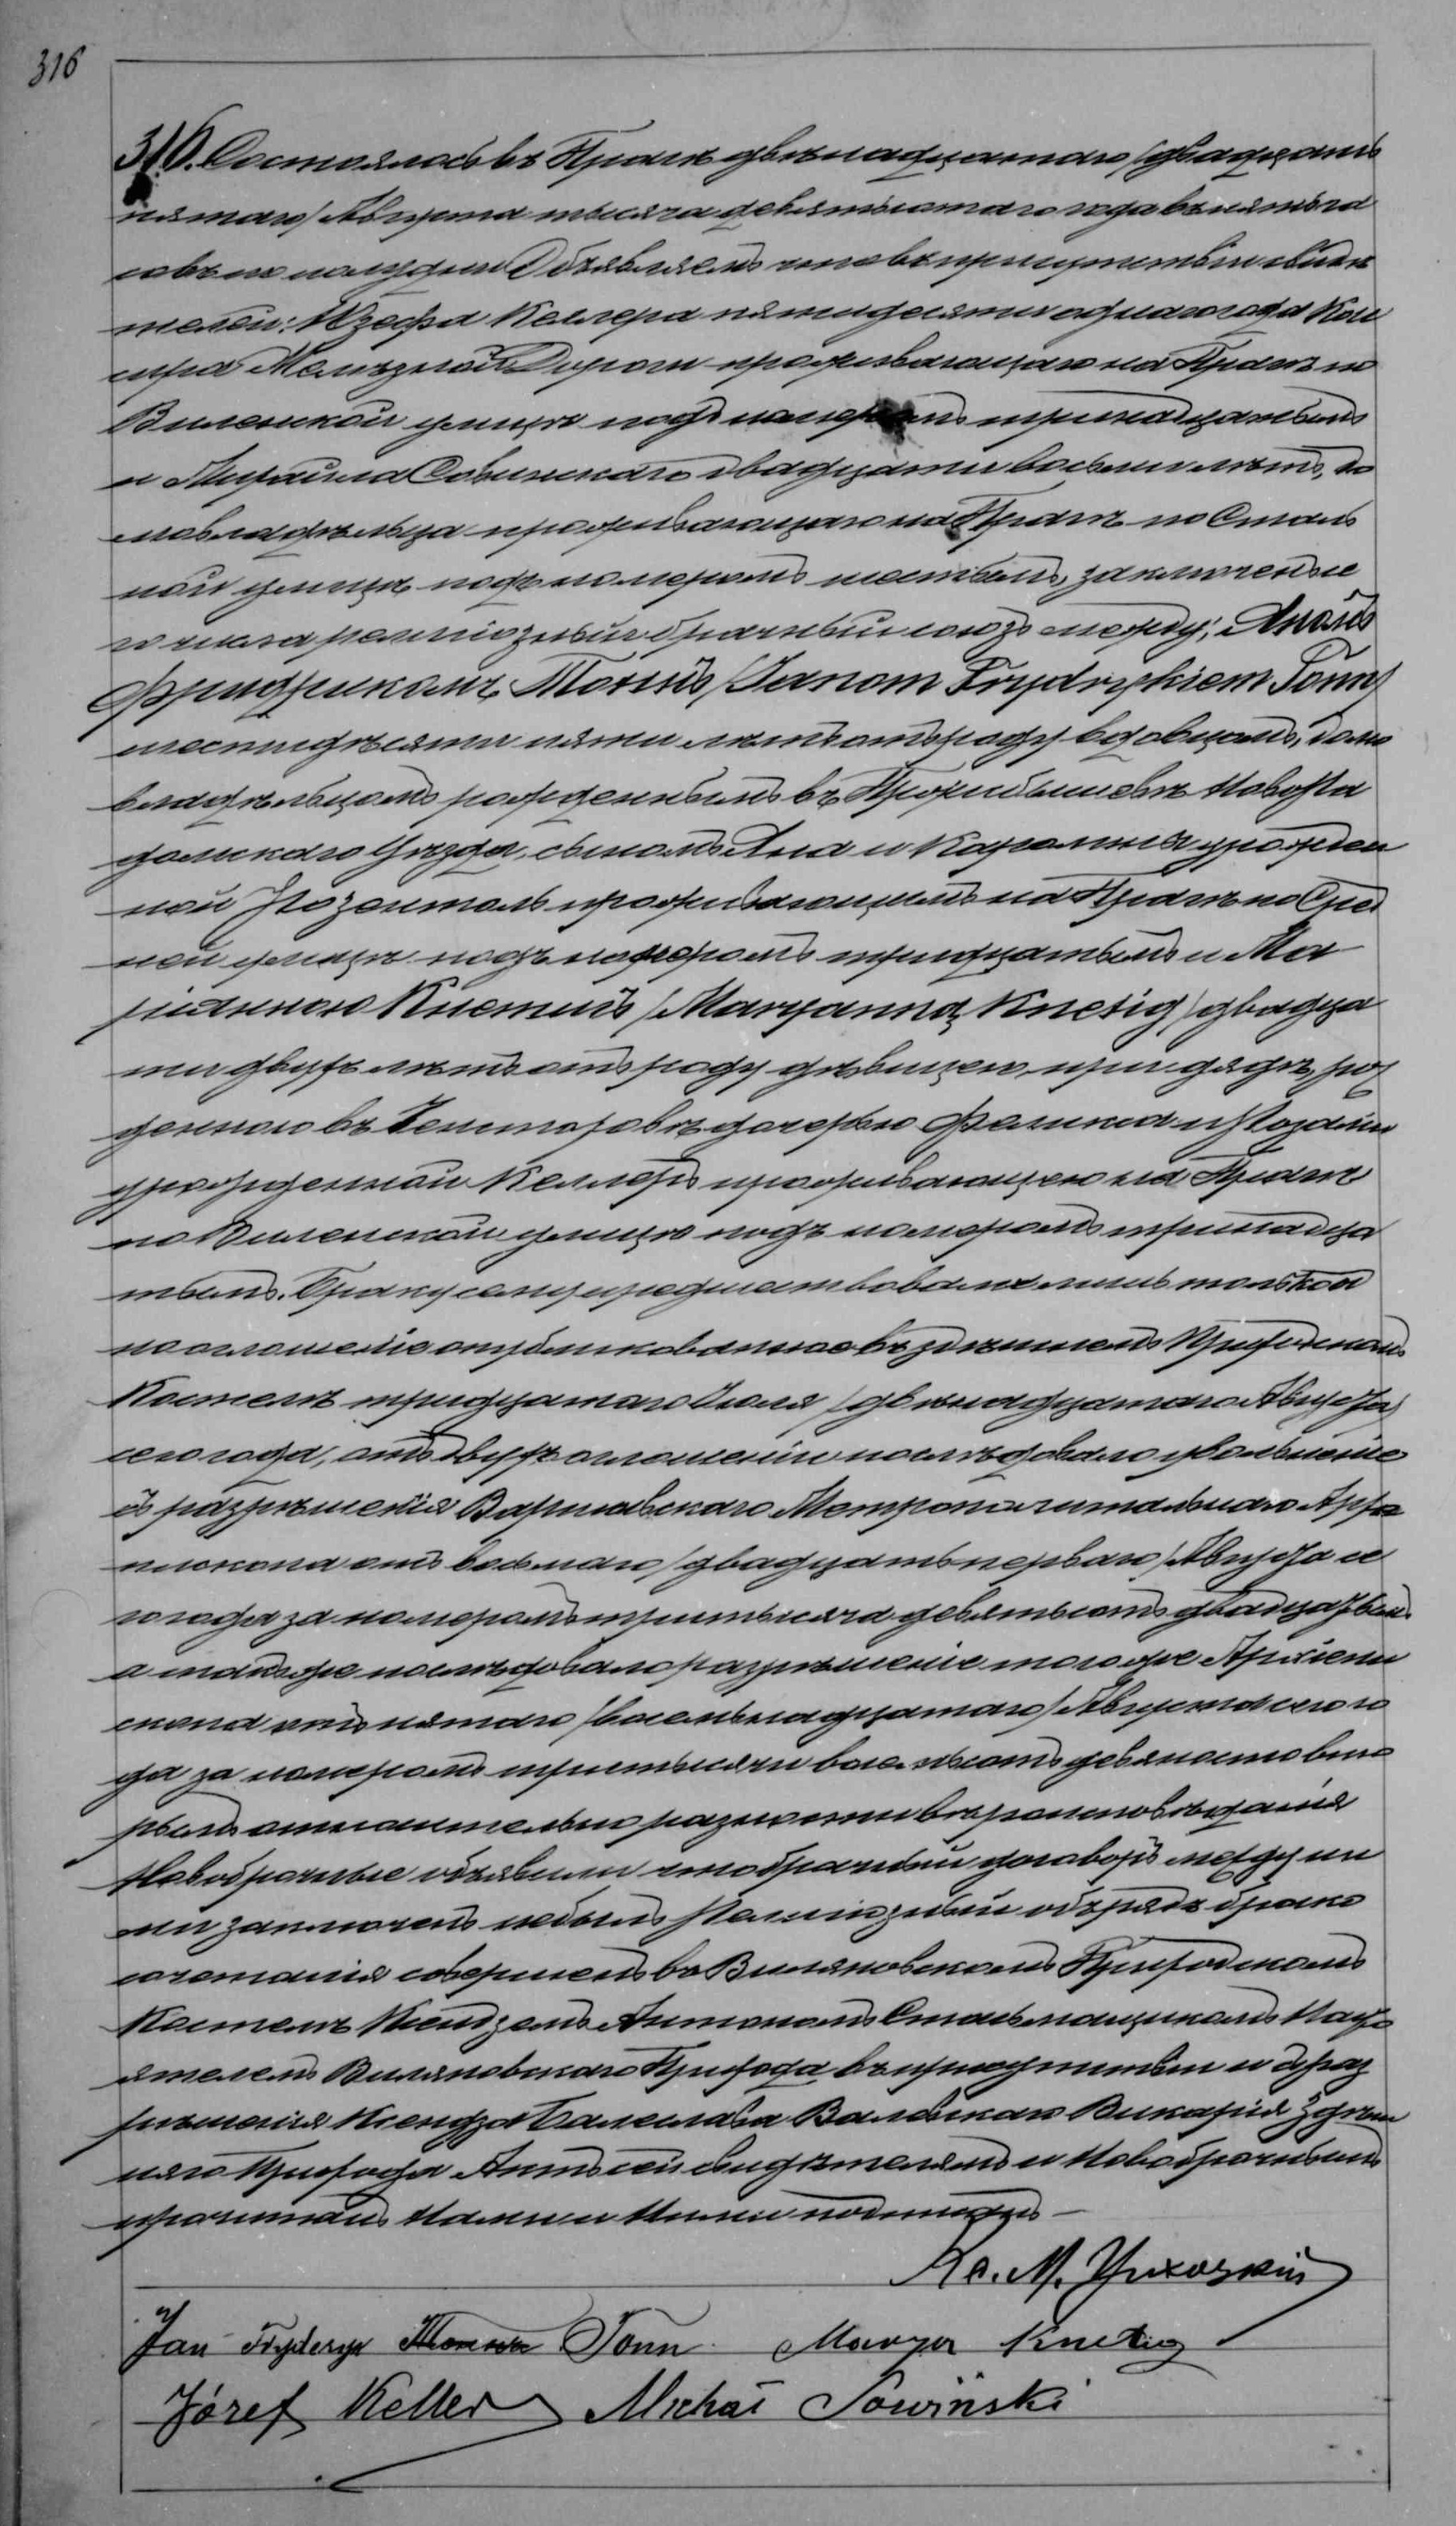 316
316. Состоялось въ Прагѣ двѣнадцатаго /двадцать
пятаго/ Августа тысяча девятьсотаго года въ пять ча
совъ по полудни Объявляемъ что въ присутствіи свидѣ
телей: Юзефа Келлера пятидесяти одного года Кас
сира Желѣзной Дороги проживающаго на Прагѣ по
Виленской улицѣ подъ номеромъ тринадцатымъ
и Михаила Совинскаго двадцати восьми лѣтъ, до
мовладѣльца проживающаго на Прагѣ по Сталь
ной улицѣ подъ номеромъ шестымъ, заключенъ се
го числа религіозный брачный союзъ между: Яномъ
Фридрикомъ Тоннъ /Janom Frydrykiem Tonn/
шестидѣсяти пяти лѣтъ отъ роду вдовцомъ, домо
владѣльцомъ рожденнымъ въ Нова
домскаго Уѣзда, сыномъ Яна и Каролины урожден
ной Розенталь проживающимъ на Прагѣ по Сред
ней улицѣ подъ номеромъ тридцатымъ и Ма
ріанною Кнетигъ /Maryanną Knetig/ двадца
ти двухъ лѣтъ отъ роду дѣвицею, при дядѣ, рож
денною въ Ченстоховѣ дочерью Феликса и Розаліи
урожденной Келлеръ проживающею на Прагѣ
по Виленской улицѣ подъ номеромъ тринадца
тымъ. Браку сему предшествовало лишь только од
но оглашеніе опубликованное въ здѣшнемъ Приходскомъ
Костелѣ тридцатаго Іюля /двѣнадцатаго Августа/
сего года, отъ двухъ оглашеній послѣдовало увольненіе
съ разрѣшенія Варшавскаго Метрополитальнаго Архіе
пископа отъ восьмаго /двадцать перваго/ Августа се
го года за номеромъ три тысяча девятьсотъ двадцатымъ
а также послѣдовало разрѣшеніе того же Архіепи
скопа отъ пятаго /восемьнадцатаго/ Августа сего го
да за номеромъ три тысячи восемьсотъ девяносто вто
рымъ относительно разности вѣроисповѣданія
Новобрачные объявили что брачный договоръ между ни
ми заключенъ небылъ Религіозный обрядъ брако
сочетанія совершенъ въ Виляновскомъ Приходскомъ
Костелѣ Ксендзомъ Антономъ Насто
ятелемъ Виляновскаго Прихода въ присутствіи и съ раз
рѣшенія Ксендза Болеслава Викарія Здѣш
няго Прихода Актъ сей свидѣтелямъ и Новобрачнымъ
прочитанъ Нами и Ими подписанъ —
Кс. М.
Jan Fryderyk Tonn Marya Knetig
Józef Keller Michał Sowiński